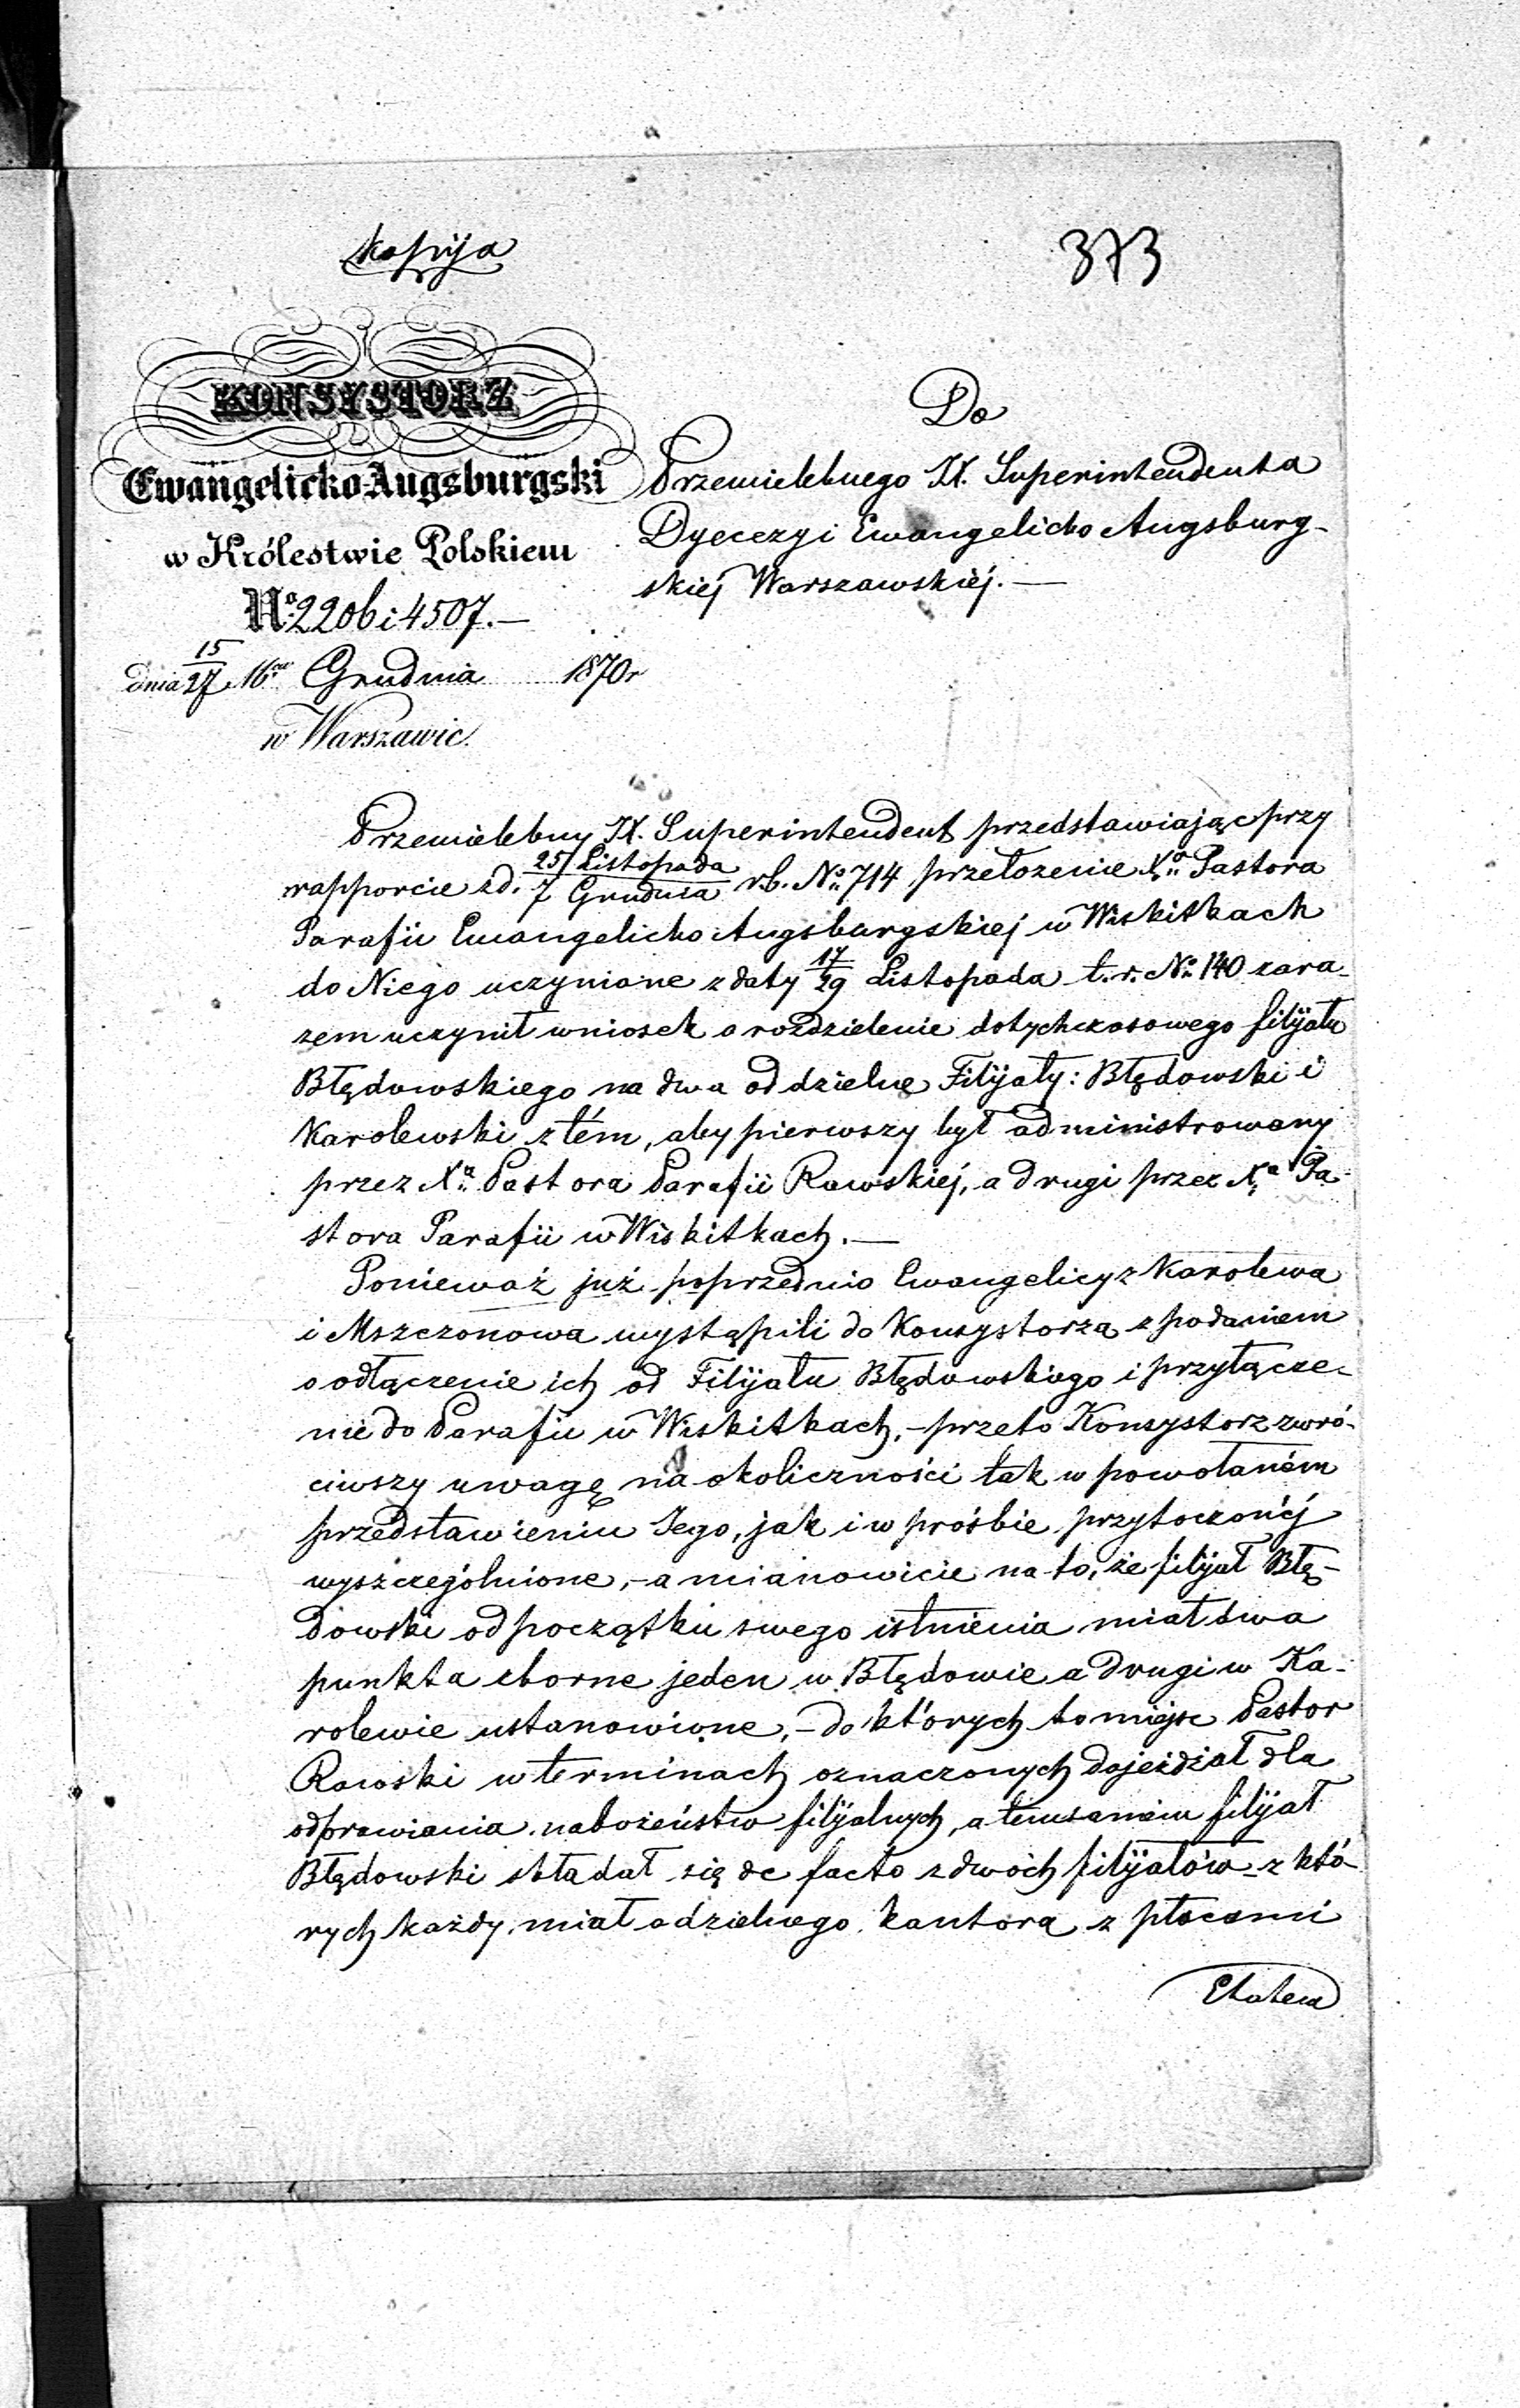 kopija
373
KONSYSTORZ
Ewangelicko-Augsburgski
w Królestwie Polskiem
No 2206 i 4507. —
dnia 15/27 Grudnia 1870 r
w Warszawie.
Do
Przewielebnego X. Superintendenta
Dyecezyi Ewangelicko Augsburg-
skiej Warszawskiéj. —
Przewielebny X. Superintendent przedstawiając przy
rapporcie z d. 25 Listopada/7 Grudnia r.b. No 714 przełożenie Xa Pastora
Parafii Ewangelicko Augsburgskiej w Wiskitkach
do Niego uczynione z daty 17/29 Listopada t.r. No 140 zara-
zem uczynił wniosek o rozdzielenie dotychczasowego filijału
Błędowskiego na dwa oddzielne Filijały: Błędowski i
Karolewski z tém, aby pierwszy był administrowany
przez Xa Pastora Parafii Rawskiej, a drugi przez Xa Pa-
stora Parafii w Wiskitkach. —
Ponieważ już poprzednio Ewangelicy z Karolewa
i Mszczonowa wystąpili do Konsystorza z podaniem
o odłączenie ich od Filijału Błędowskiego i przyłącze-
nie do Parafii w Wiskitkach, – przeto Konsystorz zwró-
ciwszy uwagę na okoliczności tak w powołaném
przedstawieniu Jego, jak i w prośbie przytoczonéj
wyszczególnione, – a mianowicie na to, że filijał Błę-
dowski od początku swego istnienia miał dwa
punkta zborne jeden w Błędowie a drugi w Ka-
rolewie ustanowione, – do których to miejsc Pastor
Rawski w terminach oznaczonych dojeżdżał dla
odprawiania nabożeństw filijalnych, a temsamém filijał
Błędowski składał się de facto z dwóch filijałów – z któ-
rych każdy miał odzielnego kantora z płacami
Etatem